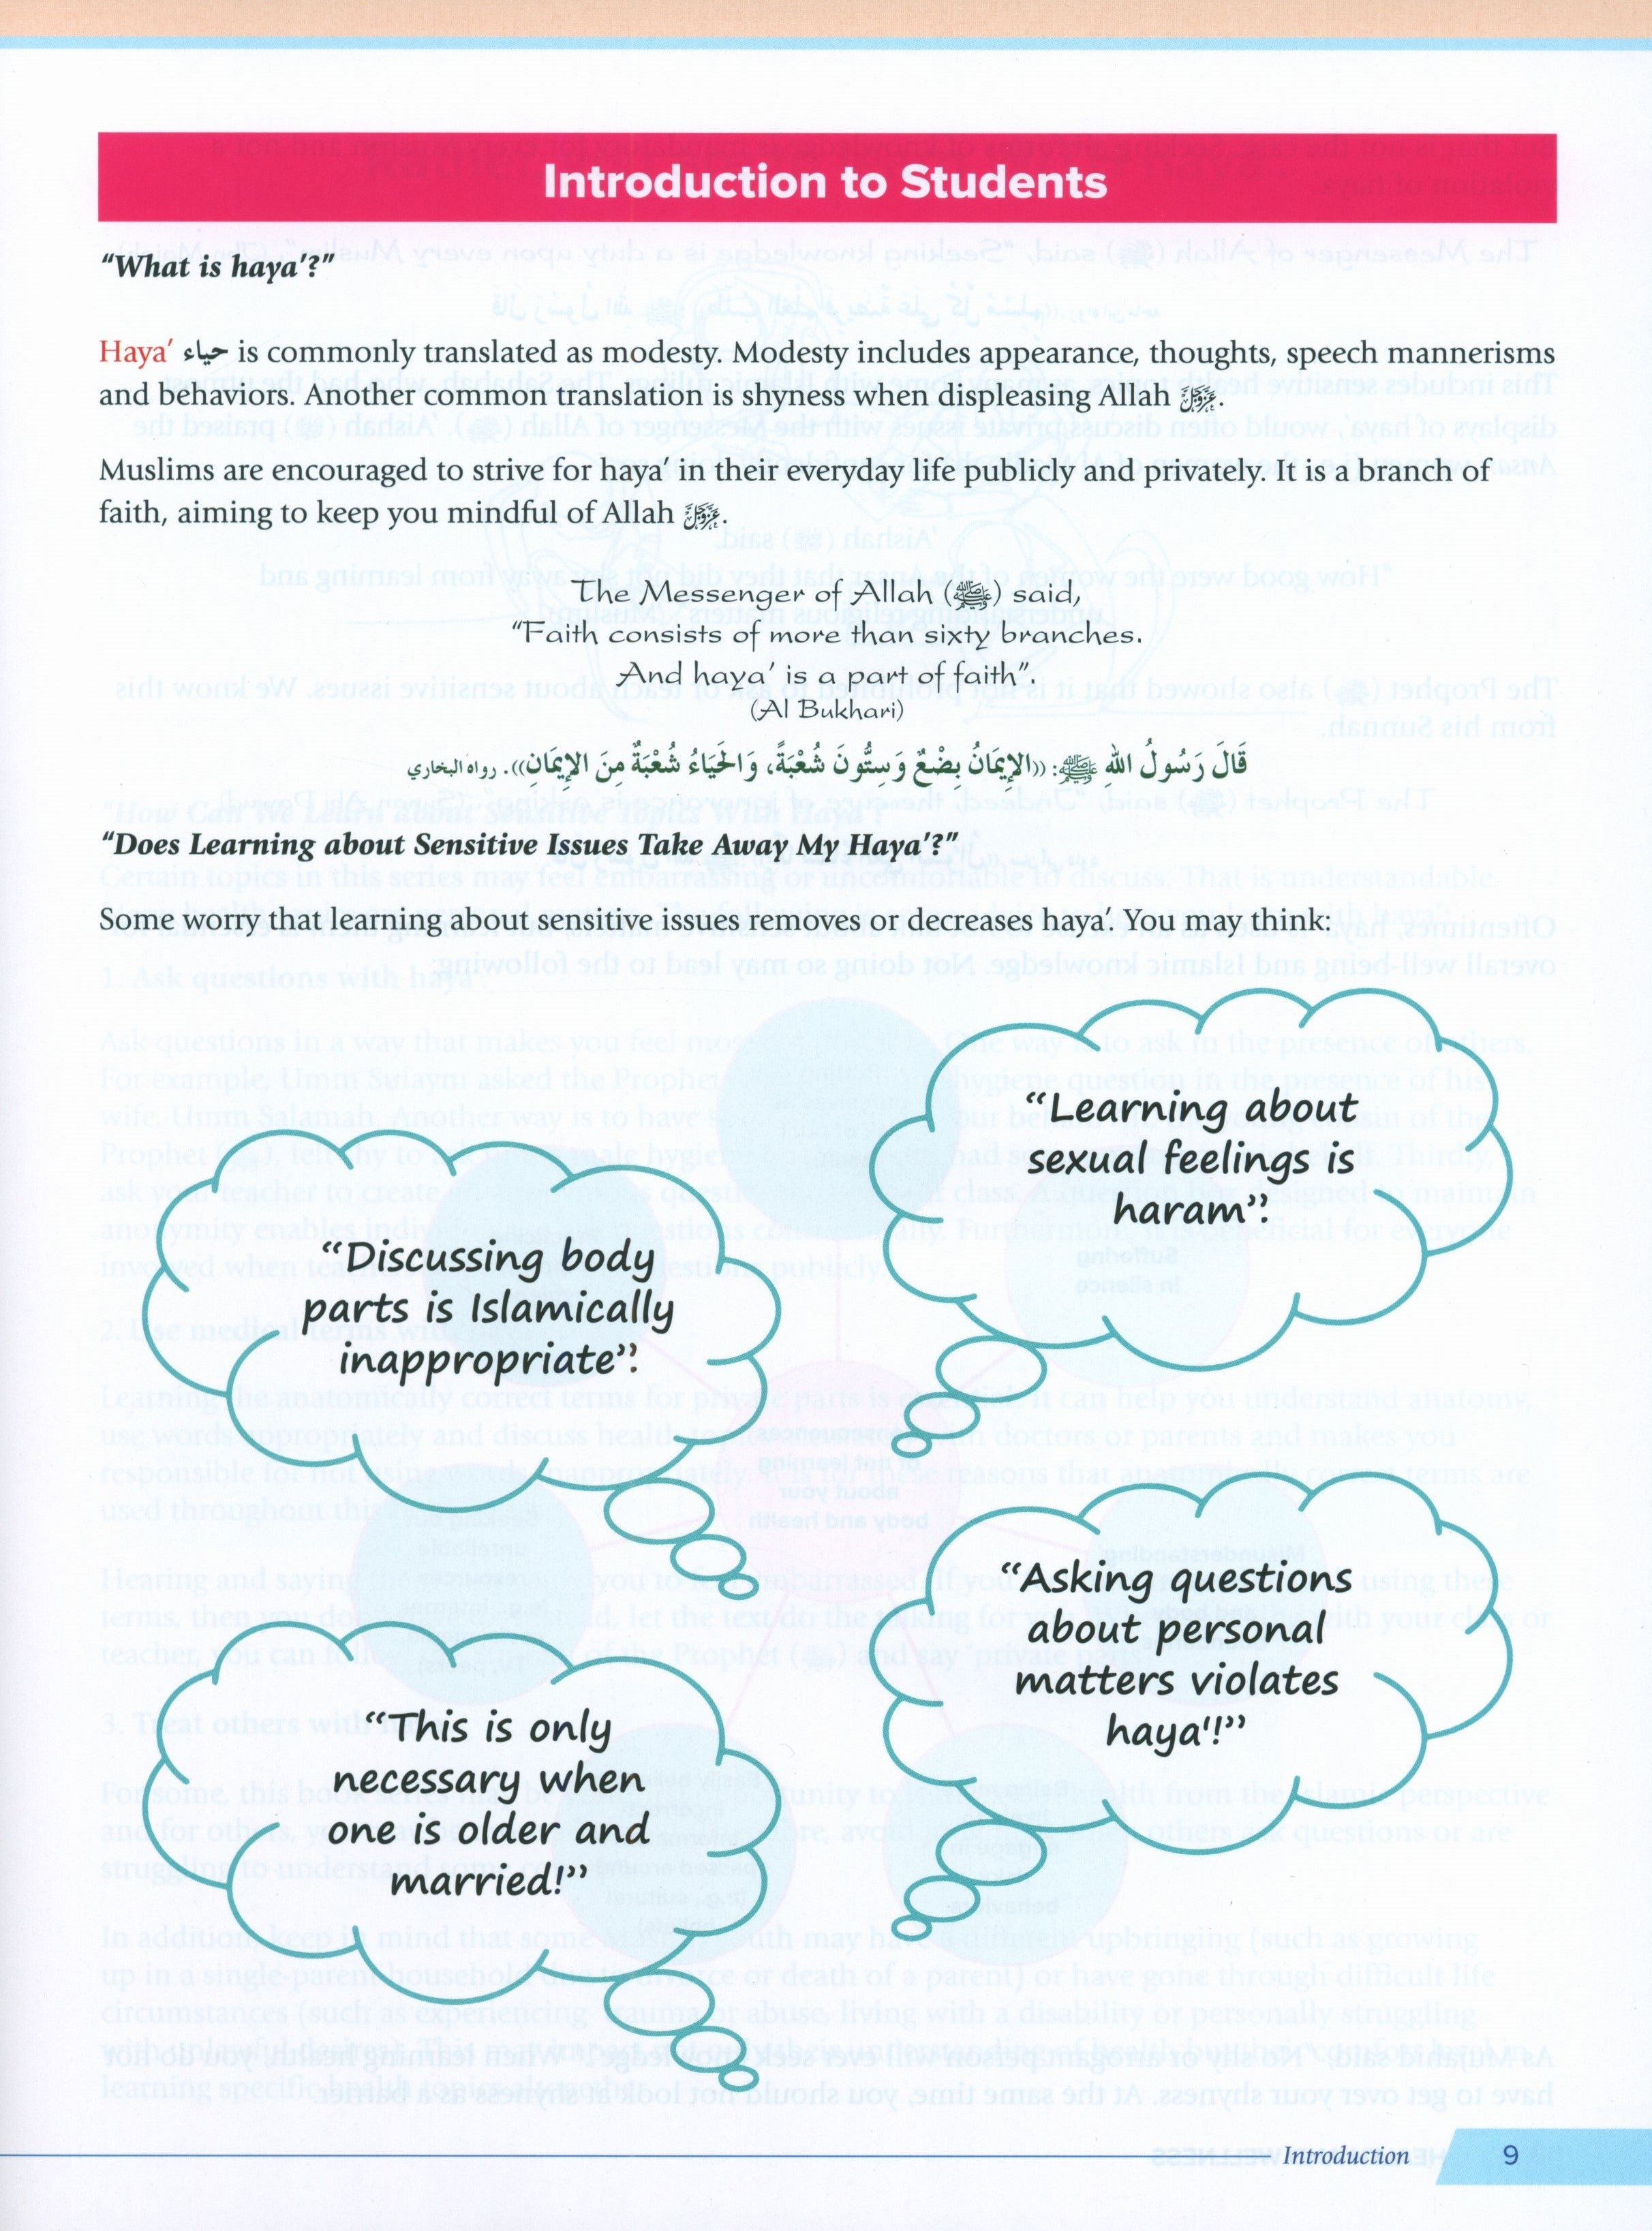 Introduction to Students
“What is haya’?”
Haya’ حياء is commonly translated as modesty. Modesty includes appearance, thoughts, speech mannerisms
and behaviors. Another common translation is shyness when displeasing Allah ﷻ.
Muslims are encouraged to strive for haya’ in their everyday life publicly and privately. It is a branch of
faith, aiming to keep you mindful of Allah ﷻ.
The Messenger of Allah (ﷺ) said,
“Faith consists of more than sixty branches.
And haya’ is a part of faith”.
(Al Bukhari)
قَالَ رَسُولُ اللهِ ﷺ: ((الإِيمَانُ بِضْعٌ وَسِتُّونَ شُعْبَةً، وَالحَيَاءُ شُعْبَةٌ مِنَ الإِيمَانِ)). رواه البخاري
“Does Learning about Sensitive Issues Take Away My Haya’?”
Some worry that learning about sensitive issues removes or decreases haya’. You may think:
“Learning about
sexual feelings is
haram”.
“Discussing body
parts is Islamically
inappropriate”.
“Asking questions
about personal
matters violates
haya'!”
“This is only
necessary when
one is older and
married!”
Introduction 9